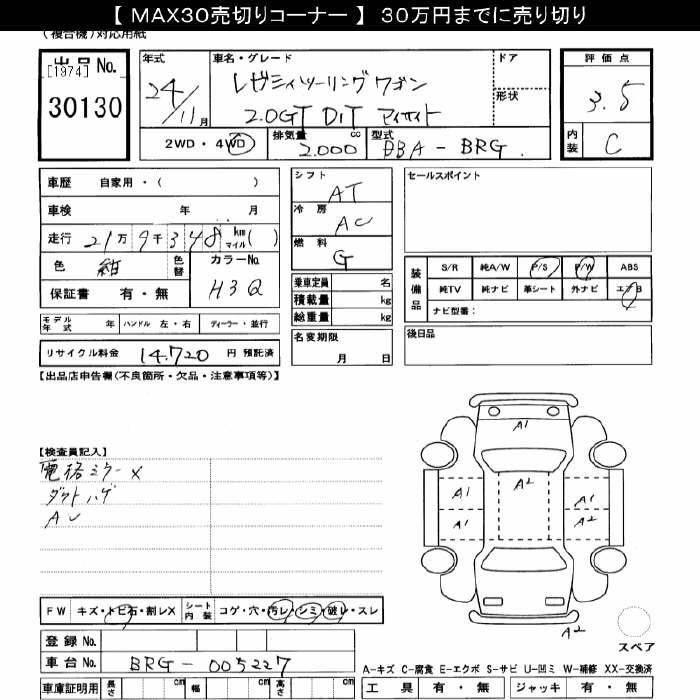 【 MAX30売切りコーナー 】 30万円までに売り切り
(複合機)対応用紙
出品No.
[1974]
30130
年式
24/11月
車名・グレード
レガシィツーリングワゴン
2.0GT DIT アイサイト
ドア
形状
評価点
3.5
内装
C
2WD・4WD
排気量
2.000
cc
型式
DBA-BRG.
車歴 自家用・( )
車検 年 月
走行 21万9千348 km マイル( )
色 紺 色替
カラーNo.
H3Q
保証書 有・無
モデル年式 年 ハンドル 左・右 ディーラー・並行
リサイクル料金 14.720 円 預託済
シフト
AT
冷房
AC
燃料
G
乗車定員 名
積載量 kg
総重量 kg
名変期限
月 日
セールスポイント
装備品
S/R 純A/W P/S P/W ABS
純TV 純ナビ 革シート 外ナビ エアB
ナビ型番:
後日品
【出品店申告欄(不良箇所・欠品・注意事項等)】
【検査員記入】
電格ミラーX
ダクトハゲ
A1
A2
A1
A1
A1
A2
A2
スペア
FW キズ・トビ石・割レX シート内装 コゲ・穴・汚レ・シミ・破レ・スレ
登録No.
車台No. BRG-005227
車庫証明用 長さ cm 幅 cm 高さ cm
A-キズ C-腐食 E-エクボ S-サビ U-凹ミ W-補修 XX-交換済
工具 有・無 ジャッキ 有・無